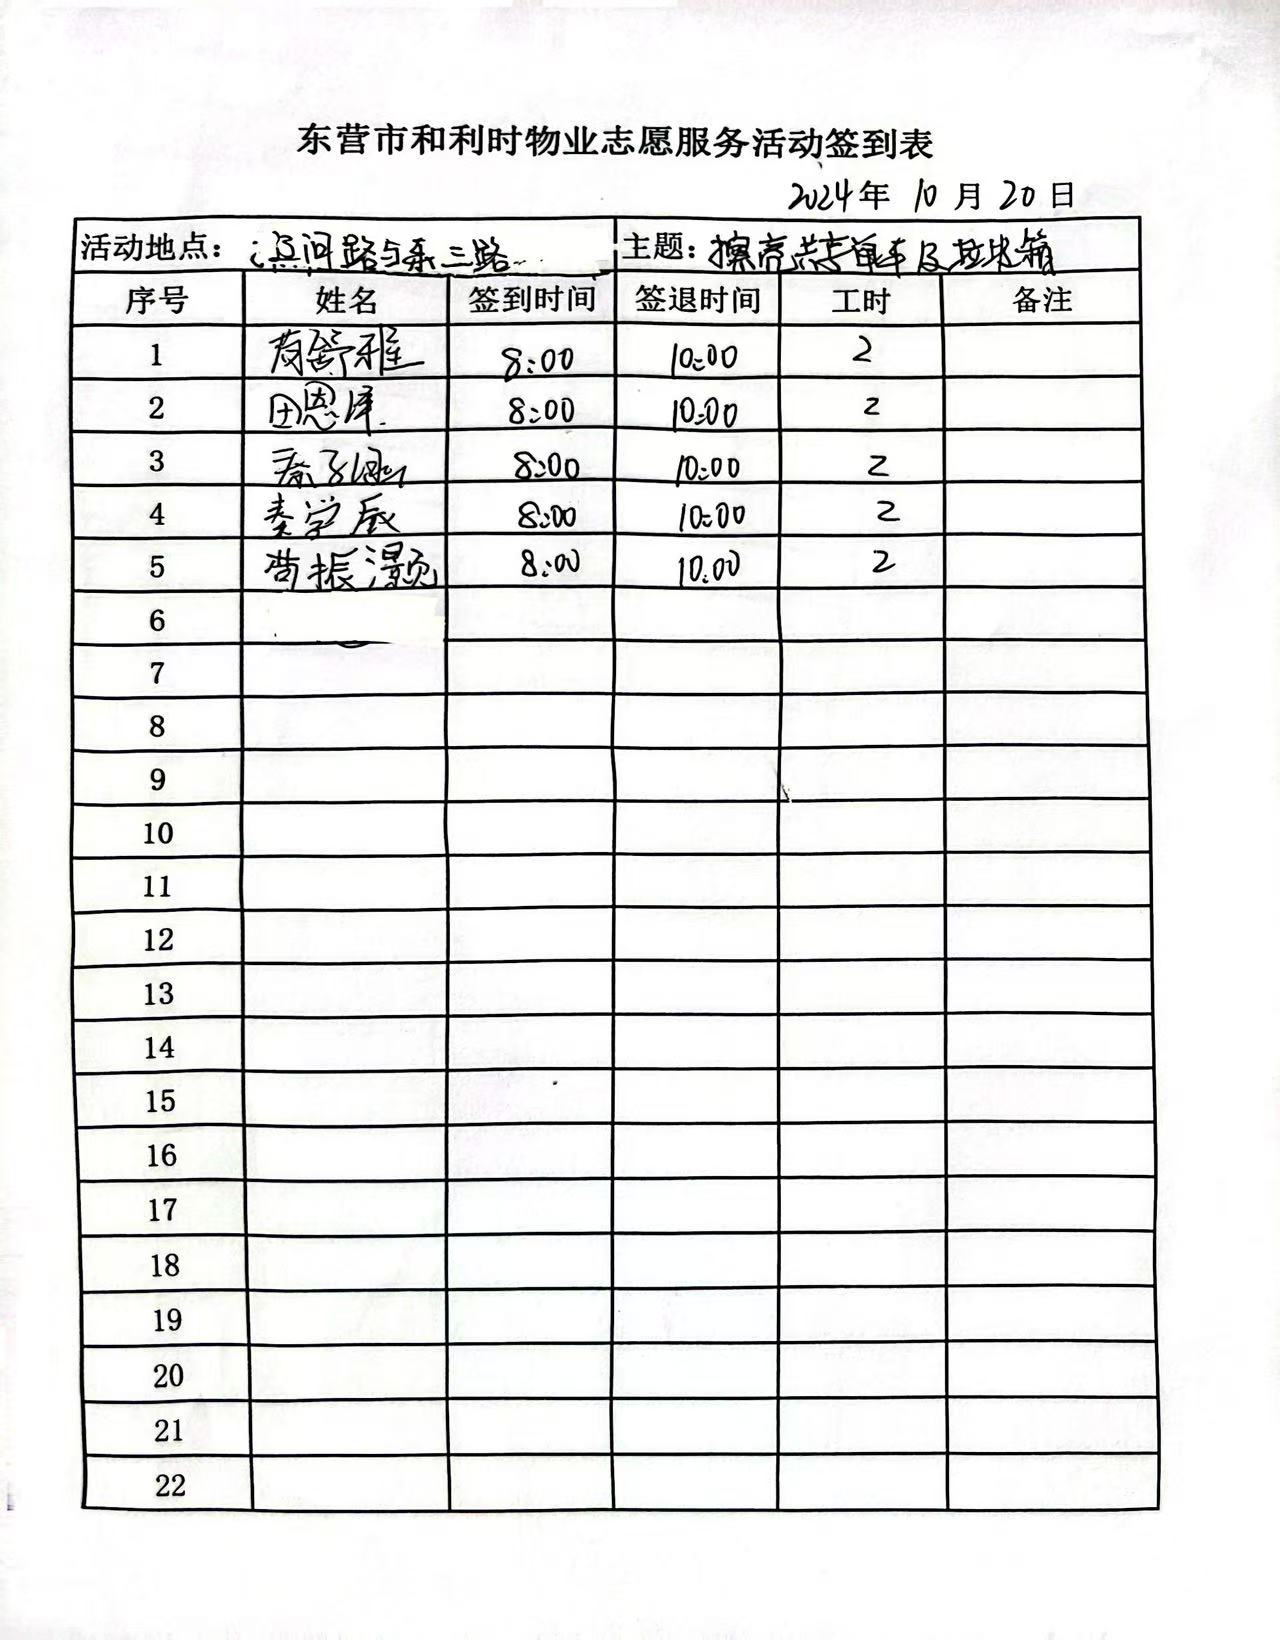 东营市和利时物业志愿服务活动签到表
2024年 10 月 20 日
活动地点： 路与东三路 主题：擦亮共享单车及垃圾箱
序号 姓名 签到时间 签退时间 工时 备注
1 舒雅 8:00 10:00 2
2 田恩泽 8:00 10:00 2
3 8:00 10:00 2
4 秦学辰 8:00 10:00 2
5 苗振灏 8:00 10:00 2
6
7
8
9
10
11
12
13
14
15
16
17
18
19
20
21
22